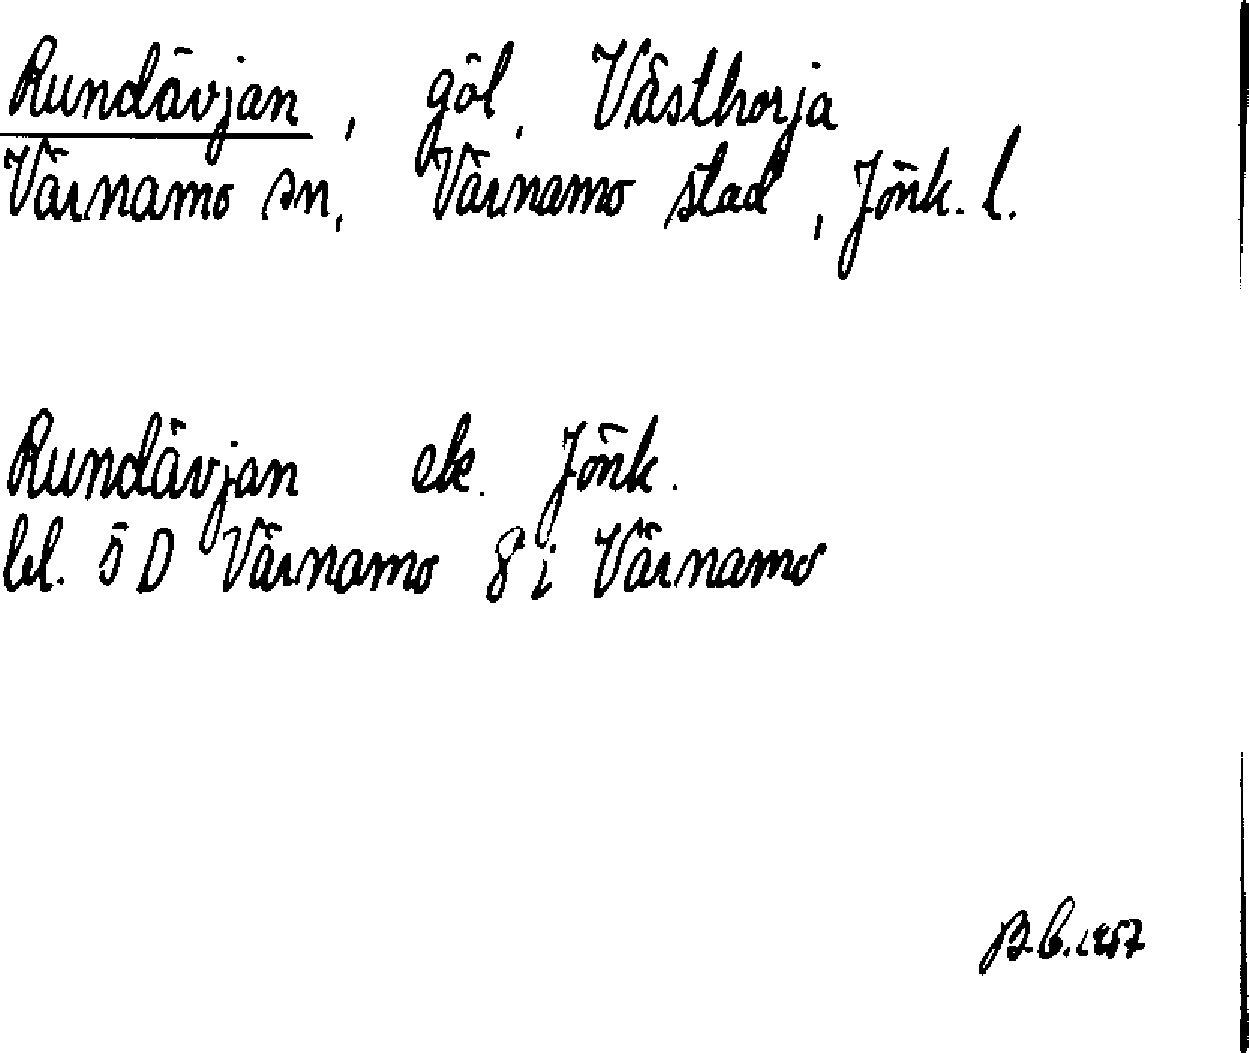 Rundävjan, göl, Västhorja
Värnamo sn, Värnamo stad, Jönk. l.
Rundävjan ek. Jönk.
bl. 5 D Värnamo 8 i Värnamo
1957